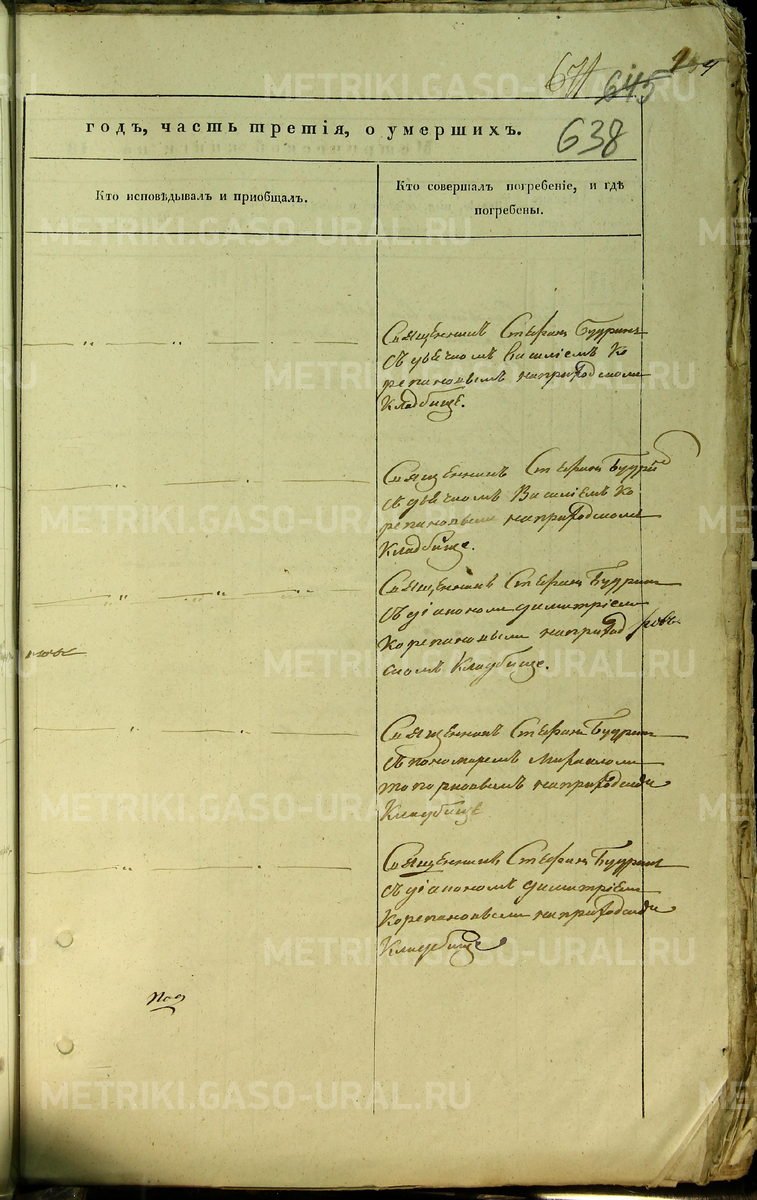 638
годъ, часть третія, о умершихъ.
Кто исповѣдывалъ и приобщалъ.
Кто совершалъ погребеніе, и гдѣ
погребены.
Священникъ Стефанъ Будринъ
съ дьячкомъ Василіемъ Ко
репановымъ на приходскомъ
Кладбище.
Священникъ Стефанъ Будрин
съ дьячкомъ Василіемъ Ко
репановымъ на приходскомъ
Кладбище.
Священникъ Стефанъ Будринъ
съ діакономъ Димитріемъ
Корепановымъ на приход
скомъ Кладбище.
Священникъ Стефанъ Будринъ
съ пономаремъ Михаиломъ
Топорковымъ на приходскомъ
Кладбище
Священникъ Стефанъ Будринъ
съ діакономъ Димитріемъ
Корепановымъ на приходскомъ
Кладбище
METRIKI.GASO-URAL.RU